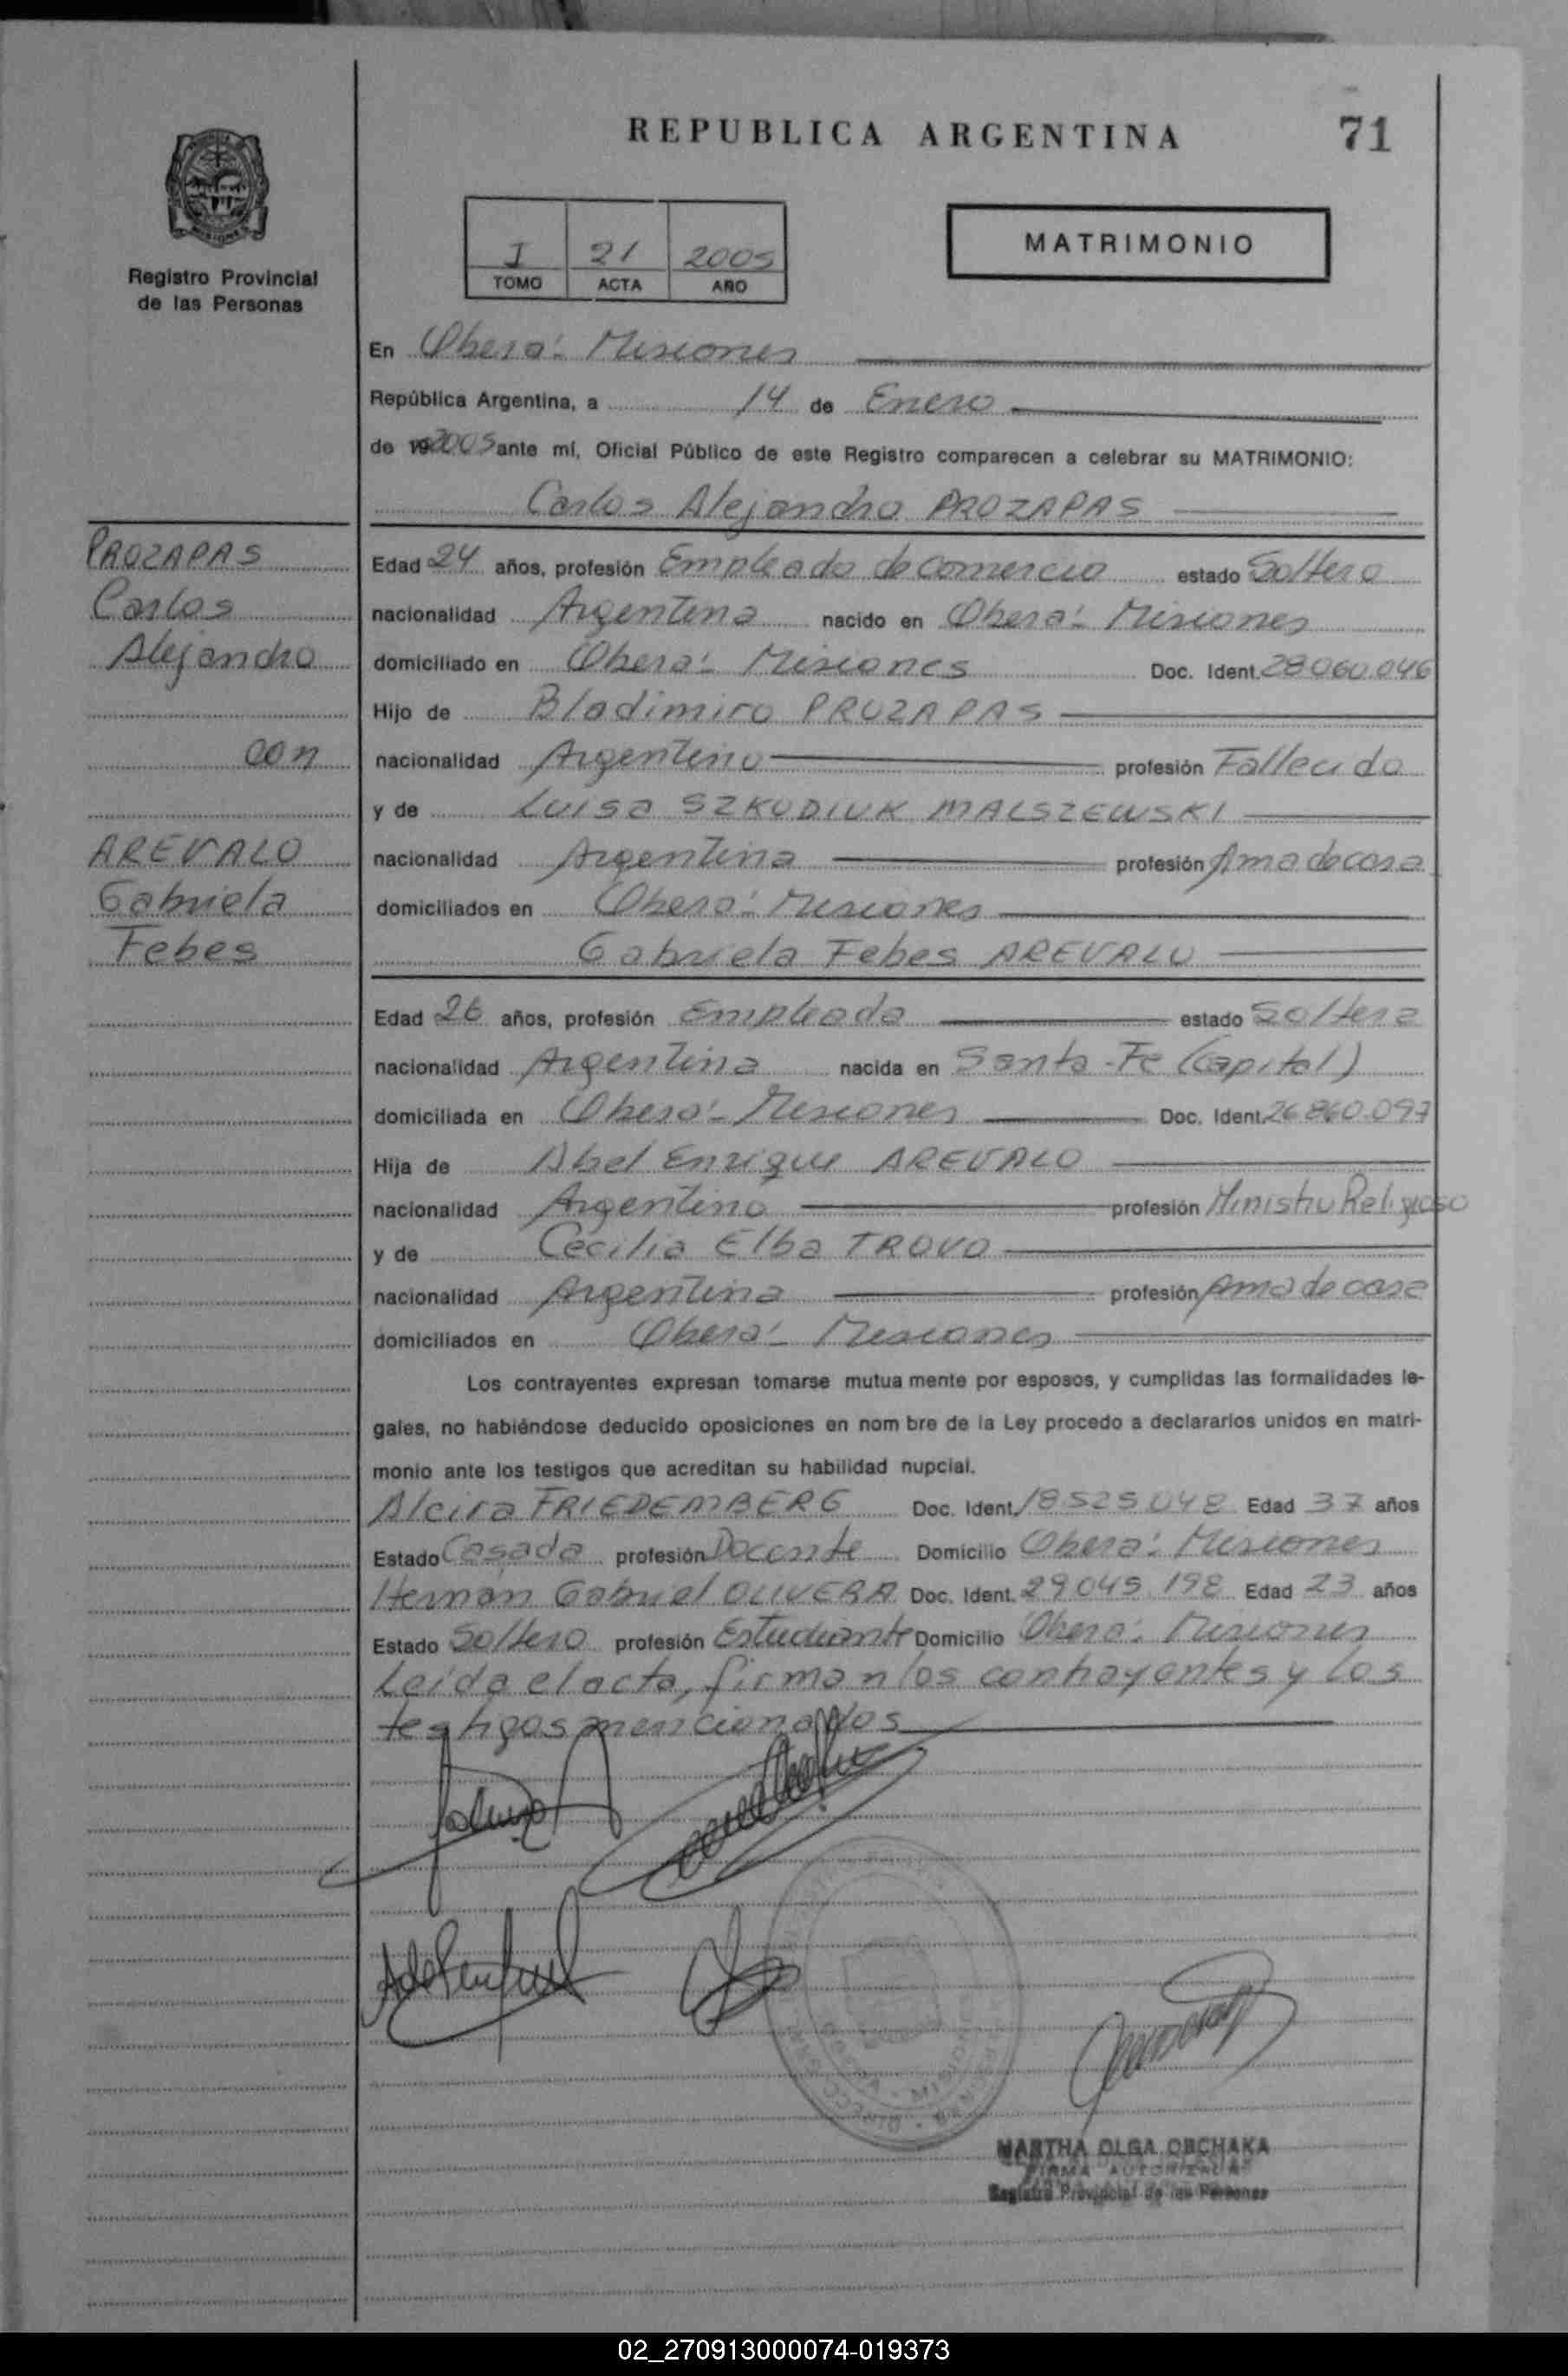 REPUBLICA ARGENTINA
71
Registro Provincial
de las Personas
I 21 2005
TOMO ACTA AÑO
MATRIMONIO
En Oberá - Misiones
República Argentina, a 14 de Enero
de 2005 ante mí, Oficial Público de este Registro comparecen a celebrar su MATRIMONIO:
Carlos Alejandro PROZAPAS
PROZAPAS
Carlos
Alejandro
con
AREVALO
Gabriela
Febes
Edad 24 años, profesión Empleado de comercio estado Soltero
nacionalidad Argentina nacido en Oberá - Misiones
domiciliado en Oberá - Misiones Doc. Ident. 28.060.046
Hijo de Bladimiro PROZAPAS
nacionalidad Argentino profesión Fallecido
y de Luisa SZKUDIUK MALSZEWSKI
nacionalidad Argentina profesión Ama de casa
domiciliados en Oberá - Misiones
Gabriela Febes AREVALO
Edad 26 años, profesión Empleada estado Soltera
nacionalidad Argentina nacida en Santa-Fe (Capital)
domiciliada en Oberá - Misiones Doc. Ident. 26.860.097
Hija de Abel Enrique AREVALO
nacionalidad Argentino profesión Ministro Religioso
y de Cecilia Elba TROVO
nacionalidad Argentina profesión Ama de casa
domiciliados en Oberá - Misiones
Los contrayentes expresan tomarse mutua mente por esposos, y cumplidas las formalidades le-
gales, no habiéndose deducido oposiciones en nom bre de la Ley procedo a declararlos unidos en matri-
monio ante los testigos que acreditan su habilidad nupcial.
Alcira FRIEDEMBERG Doc. Ident. 18.525.048 Edad 37 años
Estado Casada profesión Docente Domicilio Oberá - Misiones
Hernán Gabriel OLIVERA Doc. Ident. 29.045.198 Edad 23 años
Estado Soltero profesión Estudiante Domicilio Oberá - Misiones
Leída el acta, firman los contrayentes y los
testigos mencionados
MARTHA OLGA OBCHAKA
FIRMA AUTORIZADA
Registro Provincial de las Personas
02_270913000074-019373